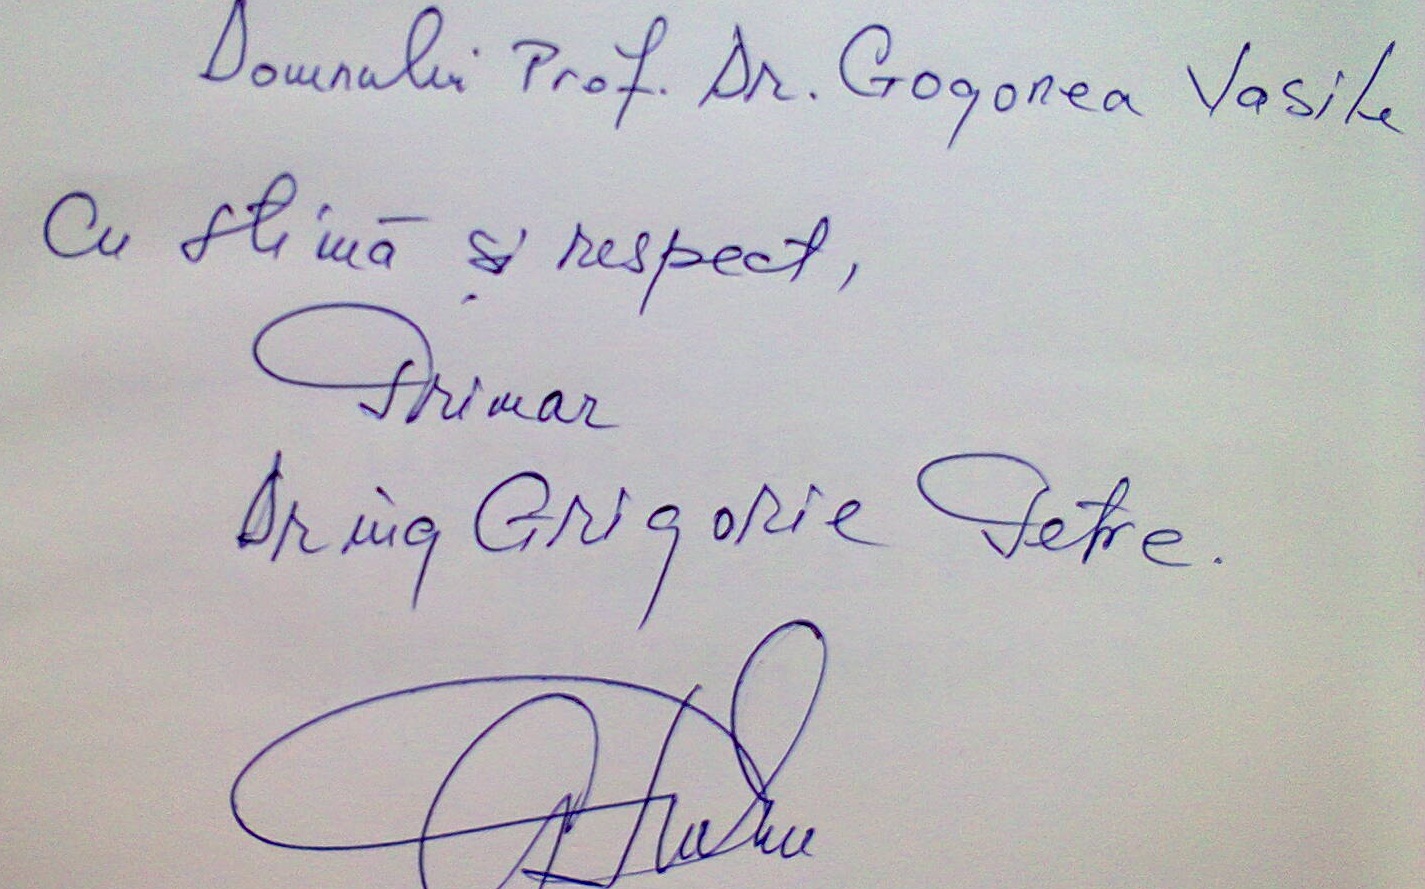 Domnului Prof. Dr. Gogonea Vasile
Cu stimă și respect,
Primar
Dr ing Grigorie Petre.